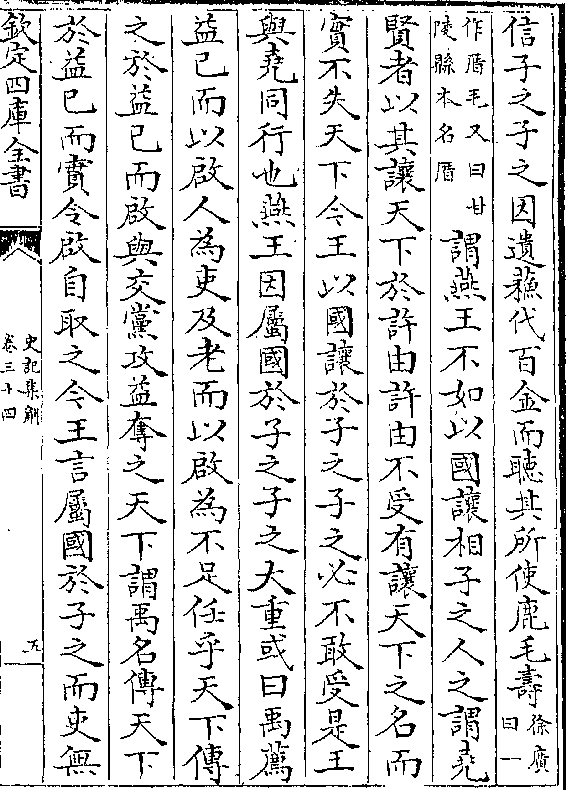 信子之子之因遺蘓代百金而聽其所使鹿毛壽徐廣曰一
作厝毛又曰甘陵縣本名厝謂燕王不如以國讓相子之人之謂堯
賢者以其讓天下於許由許由不受有讓天下之名而
實不失天下今王以國讓於子之子之必不敢受是王
與堯同行也燕王因屬國於子之子之大重或曰禹薦
益已而以啟人為吏及老而以啟為不足任乎天下傳
之於益已而啟與交黨攻益奪之天下謂禹名傳天下
於益已而實令啟自取之今王言屬國於子之而吏無
欽定四庫全書
史記集解
卷三十四
五